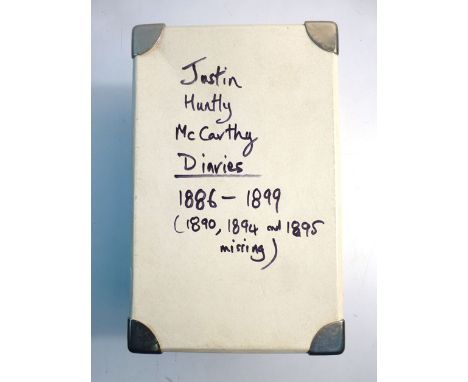 Justin
Huntly
McCarthy
Diaries
1886 - 1899
(1890, 1894 and 1895
missing)